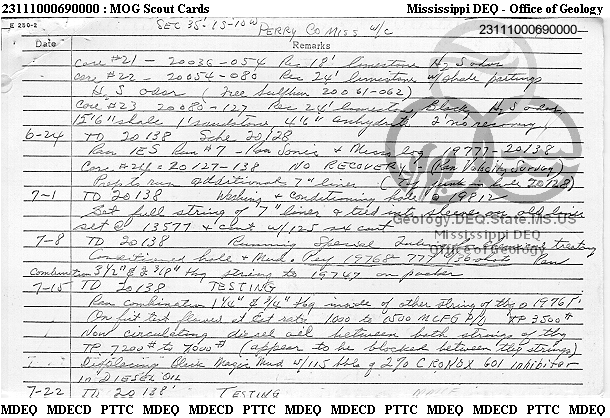 23111000690000 : MOG Scout Cards Mississippi DEQ - Office of Geology
E 250-2 SEC 35' 15-10W PERRY CO MISS W/C 23111000690000
Date Remarks
Core #21 - 20036-054 Rec 18' limestone H2S odor
Core #22 - 20054-080 Rec 24' limestone w/ shale partings
H2S odor (Free Sulphur 20061-062)
Core #23 20080-127 Rec 24' limestone, Black, H2S odor
15'6" shale 1' sandstone 4'6" anhydrite 2' no recovery
6-24 TD 20138 Schl 20128
Ran IES Run #7 - Ran Sonic & Micro log 19777-20138
Core #24 = 20127-138 NO RECOVERY - (Ran Velocity Survey)
Prep to run additional 7" liner
7-1 TD 20138 Washing & conditioning hole @ 19812
Set full string of 7" liner & tied
set @ 13577 & cmt w/125 sx cmt
Geology.DEQ.State.MS.US
Mississippi DEQ
Office of Geology
7-8 TD 20138 Running Special
Conditioned hole & Mud. Perf 19768-777 w/36 shots Rand
Combination 3 1/2" & 2 3/8" tbg string to 19747 on packer
7-15 TD 20138 TESTING
Ran combination 1 1/4" & 3/4" tbg inside of other string of tbg @ 19761'
On hit test flowed at Est rate 1000 to 1500 MCFG P/D TP 3500#
Now circulating diesel oil between both strings of tbg
TP 7200# to 7000# (appear to be blocked between tbg strings)
Displacing Black Magic Mud w/115 bbls of 2% CRONOX 601 inhibitor
in DIESEL OIL
7-22 TD 20138' TESTING
MDEQ MDECD PTTC MDEQ MDECD PTTC MDEQ MDECD PTTC MDEQ MDECD PTTC MDEQ